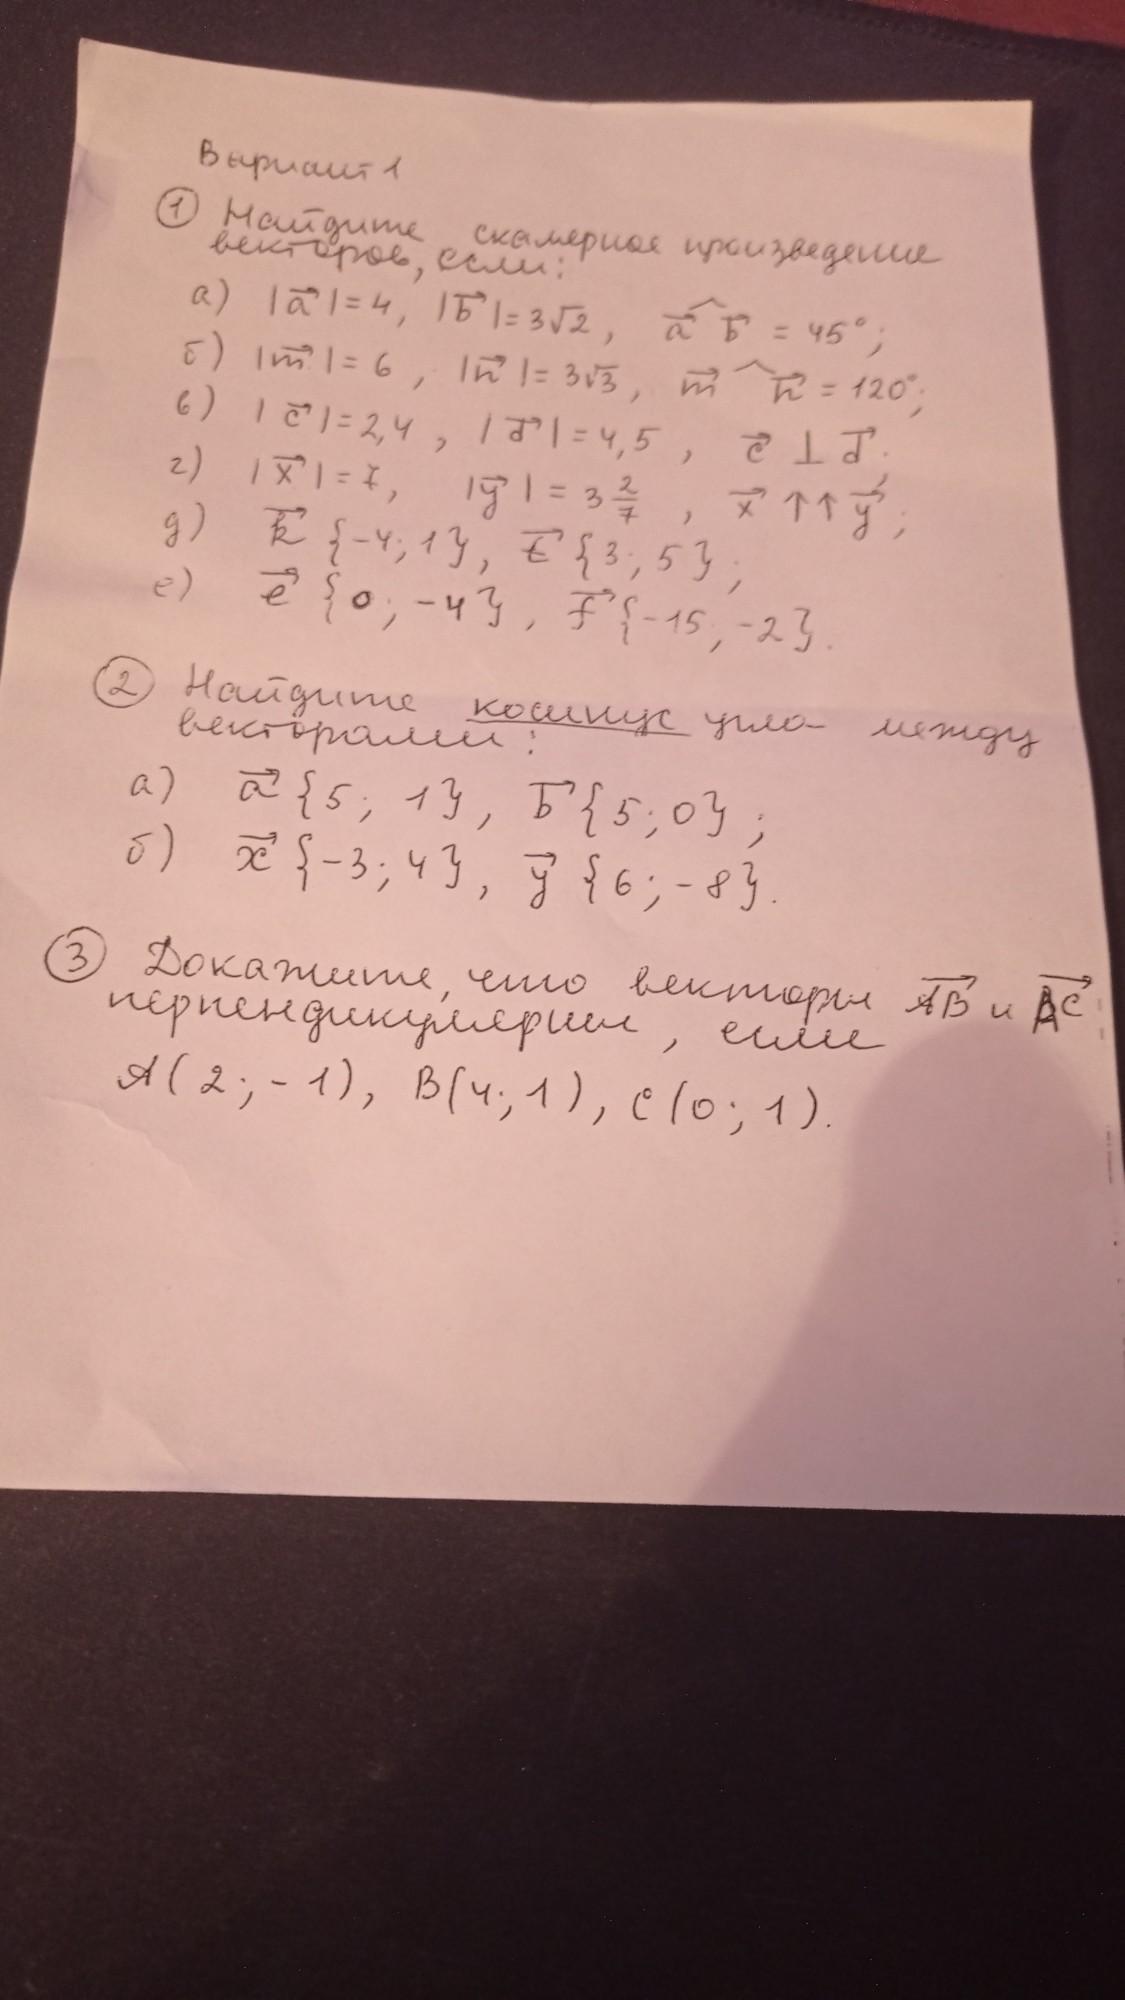 Вариант 1
① Найдите скалярное произведение
векторов, если:
а) |a⃗| = 4, |b⃗| = 3√2, a⃗ ^ b⃗ = 45°;
б) |m⃗| = 6, |n⃗| = 3√3, m⃗ ^ n⃗ = 120°;
в) |c⃗| = 2,4, |d⃗| = 4,5, c⃗ ⊥ d⃗;
г) |x⃗| = 7, |y⃗| = 3 2/7, x⃗ ↑↑ y⃗;
д) k⃗ {-4; 1}, t⃗ {3; 5};
е) e⃗ {0; -4}, f⃗ {-15; -2}.
② Найдите косинус угла между
векторами:
а) a⃗ {5; 1}, b⃗ {5; 0};
б) x⃗ {-3; 4}, y⃗ {6; -8}.
③ Докажите, что векторы A⃗B⃗ и A⃗C⃗
перпендикулярны, если
A(2; -1), B(4; 1), C(0; 1).